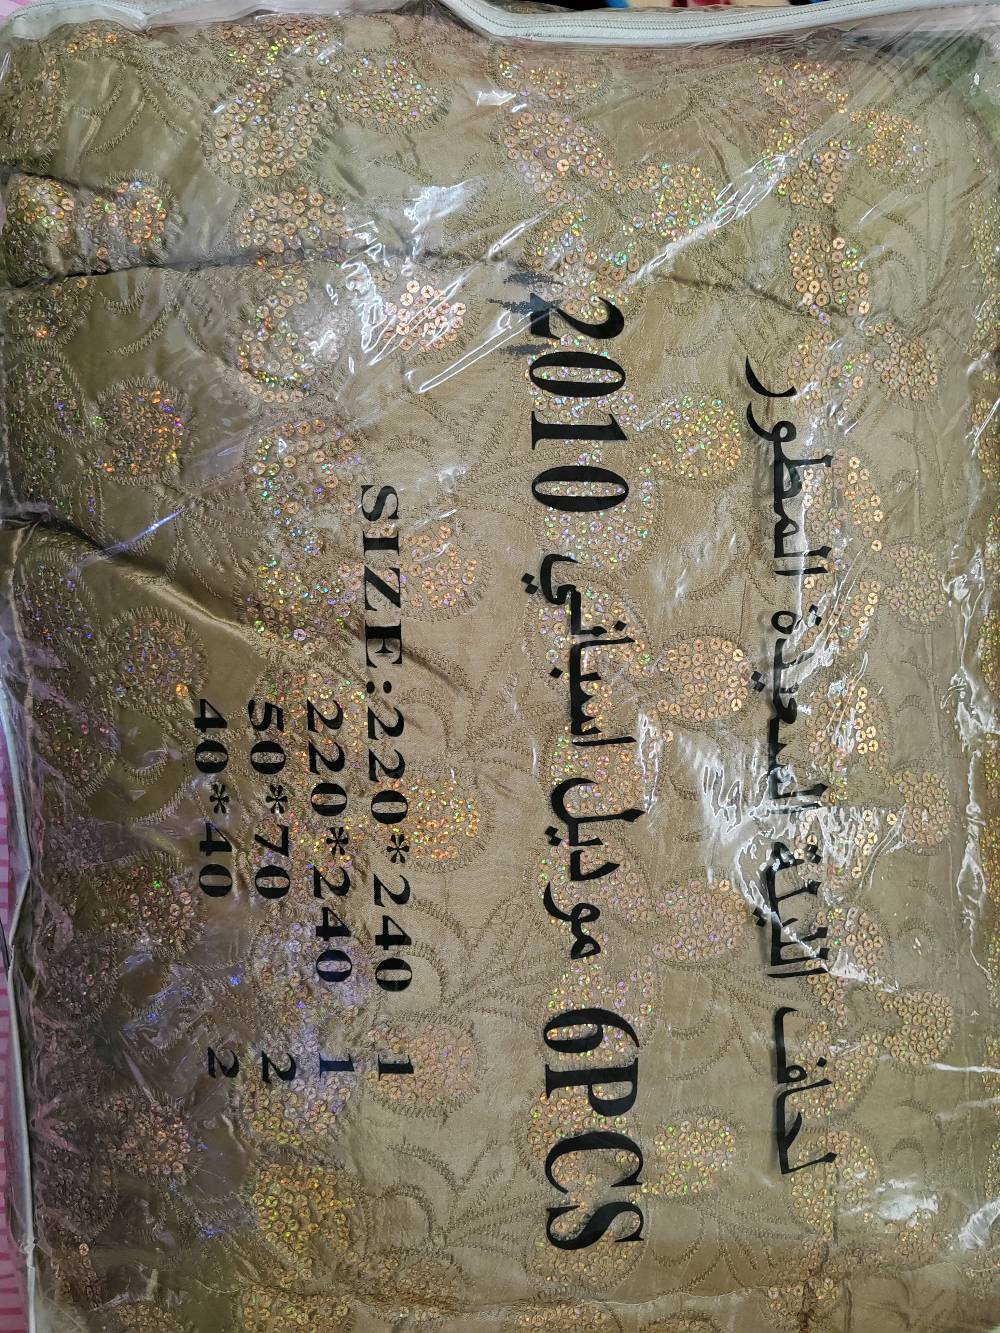 لحاف الليلة السعيدة المطور
6PCS موديل اسباني 2010
SIZE:220*240 1
220*240 1
50*70 2
40*40 2